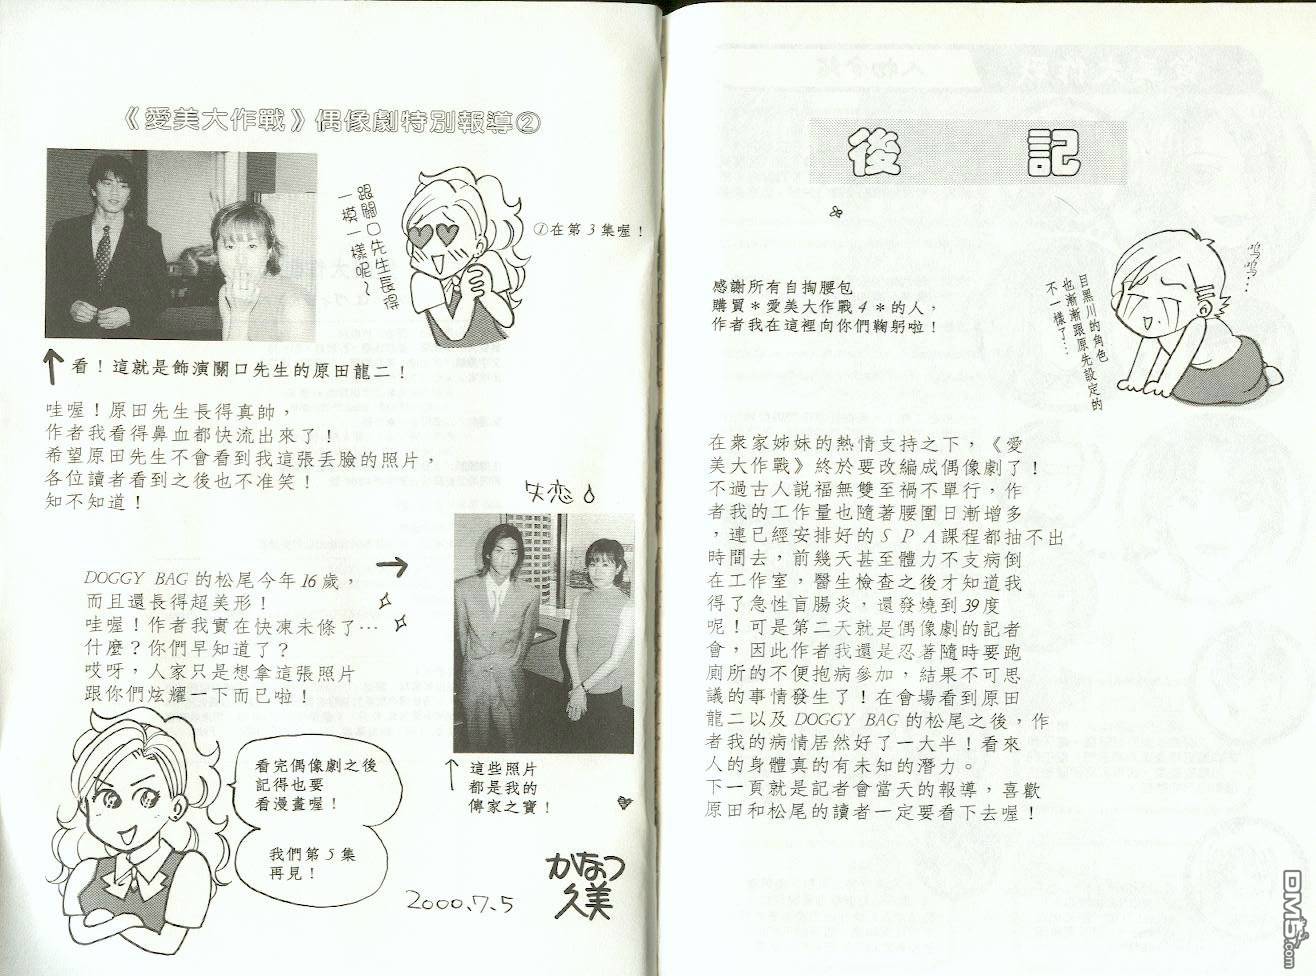 後記
感謝所有自掏腰包
購買＊愛美大作戰4＊的人，
作者我在這裡向你們鞠躬啦！
嗚嗚…
目黑川的角色
也漸漸跟原先設定的
不一樣了…
在衆家姊妹的熱情支持之下，《愛
美大作戰》終於要改編成偶像劇了！
不過古人說福無雙至禍不單行，作
者我的工作量也隨著腰圍日漸增多
，連已經安排好的SPA課程都抽不出
時間去，前幾天甚至體力不支病倒
在工作室，醫生檢查之後才知道我
得了急性盲腸炎，還發燒到39度
呢！可是第二天就是偶像劇的記者
會，因此作者我還是忍著隨時要跑
廁所的不便抱病參加，結果不可思
議的事情發生了！在會場看到原田
龍二以及DOGGY BAG的松尾之後，作
者我的病情居然好了一大半！看來
人的身體真的有未知的潛力。
下一頁就是記者會當天的報導，喜歡
原田和松尾的讀者一定要看下去喔！
《愛美大作戰》偶像劇特別報導②
跟關口先生長得
一模一樣呢～
①在第3集喔！
看！這就是飾演關口先生的原田龍二！
哇喔！原田先生長得真帥，
作者我看得鼻血都快流出來了！
希望原田先生不會看到我這張丟臉的照片，
各位讀者看到之後也不准笑！
知不知道！
失恋
DOGGY BAG的松尾今年16歲，
而且還長得超美形！
哇喔！作者我實在快凍未條了…
什麼？你們早知道了？
哎呀，人家只是想拿這張照片
跟你們炫耀一下而已啦！
看完偶像劇之後
記得也要
看漫畫喔！
我們第5集
再見！
這些照片
都是我的
傳家之寶！
2000.7.5
かなつ
久美
DM5.com